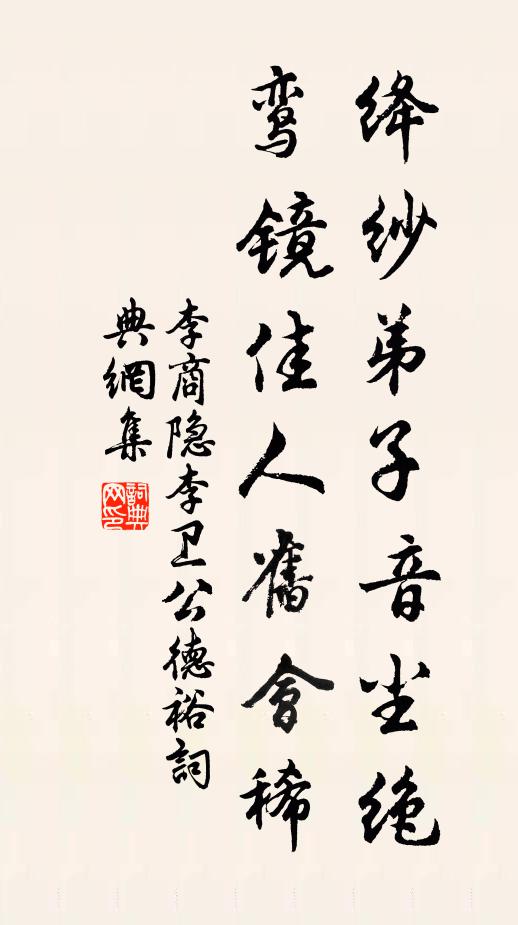 绛纱弟子音尘绝
鸾镜佳人舊會稀
李商隐李卫公德裕詞
典網集
詞典网印